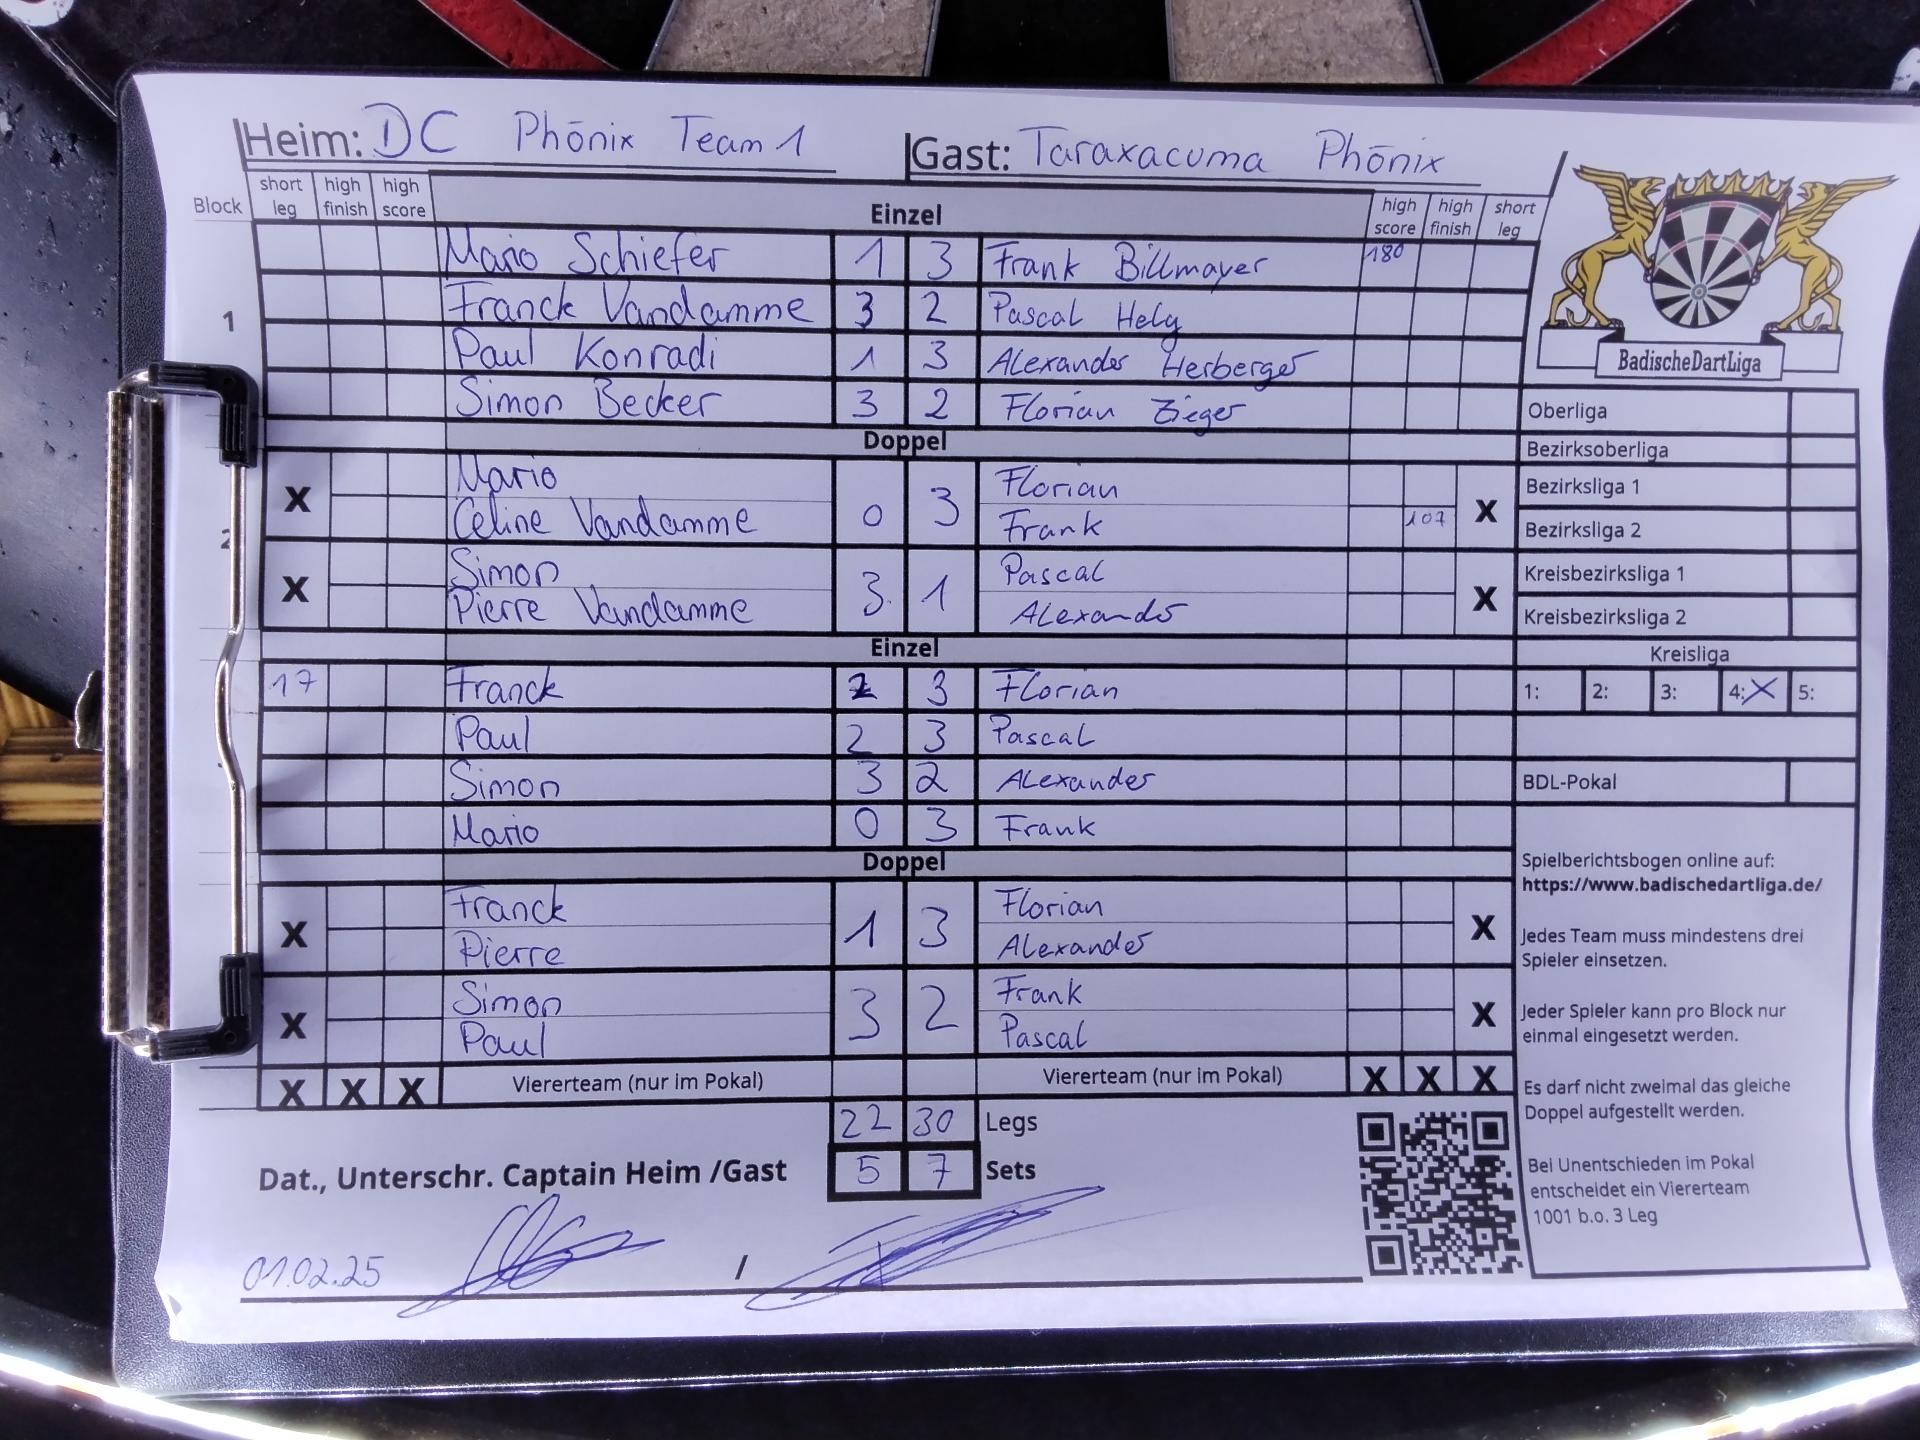 Heim: DC Phönix Team 1 Gast: Taraxacuma Phönix
Block short leg high finish high score Einzel high score high finish short leg
Mario Schiefer 1 3 Frank Billmayer 180
1 Franck Vandamme 3 2 Pascal Helg
Paul Konradi 1 3 Alexander Herberger
Simon Becker 3 2 Florian Zieger
Doppel
Mario Florian
X 0 3 X
Celine Vandamme Frank 107
2
Simon Pascal
X 3 1 X
Pierre Vandamme Alexander
Einzel
17 Franck 2 3 Florian
Paul 2 3 Pascal
Simon 3 2 Alexander
Mario 0 3 Frank
Doppel
Franck Florian
X 1 3 X
Pierre Alexander
Simon Frank
X 3 2 X
Paul Pascal
X X X Viererteam (nur im Pokal) Viererteam (nur im Pokal) X X X
22 30 Legs
5 7 Sets
Dat., Unterschr. Captain Heim /Gast
01.02.25 /
BadischeDartLiga
Oberliga
Bezirksoberliga
Bezirksliga 1
Bezirksliga 2
Kreisbezirksliga 1
Kreisbezirksliga 2
Kreisliga
1: 2: 3: 4: X 5:
BDL-Pokal
Spielberichtsbogen online auf:
https://www.badischedartliga.de/
Jedes Team muss mindestens drei
Spieler einsetzen.
Jeder Spieler kann pro Block nur
einmal eingesetzt werden.
Es darf nicht zweimal das gleiche
Doppel aufgestellt werden.
Bei Unentschieden im Pokal
entscheidet ein Viererteam
1001 b.o. 3 Leg